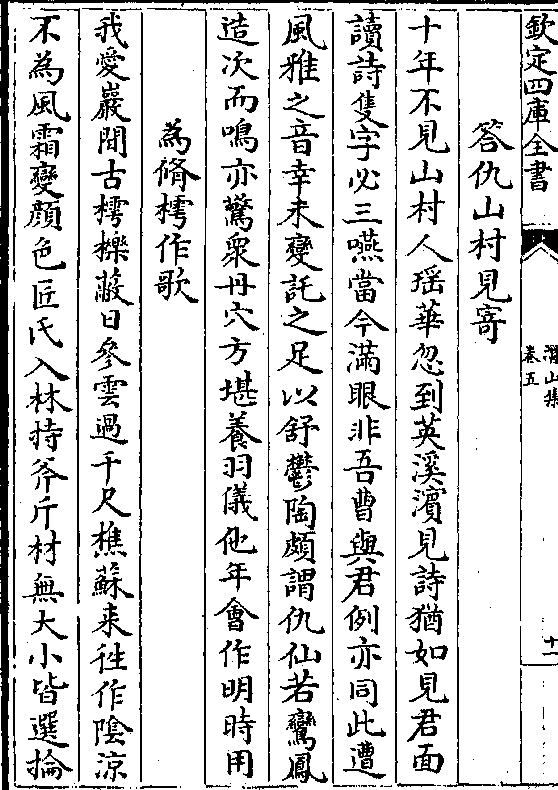 欽定四庫全書
潛山集
卷五
十一
答仇山村見寄
十年不見山村人瑶華忽到英溪濵見詩猶如見君面
讀詩隻字必三嚥當今滿眼非吾曹與君例亦同此遭
風雅之音幸未變託之足以舒鬱陶頗謂仇仙若鸞鳳
造次而鳴亦驚衆丹穴方堪養羽儀他年會作明時用
為脩樗作歌
我愛巖間古樗櫟蔽日參雲過千尺樵蘇来徃作陰涼
不為風霜變顔色匠氏入林持斧斤材無大小皆選掄